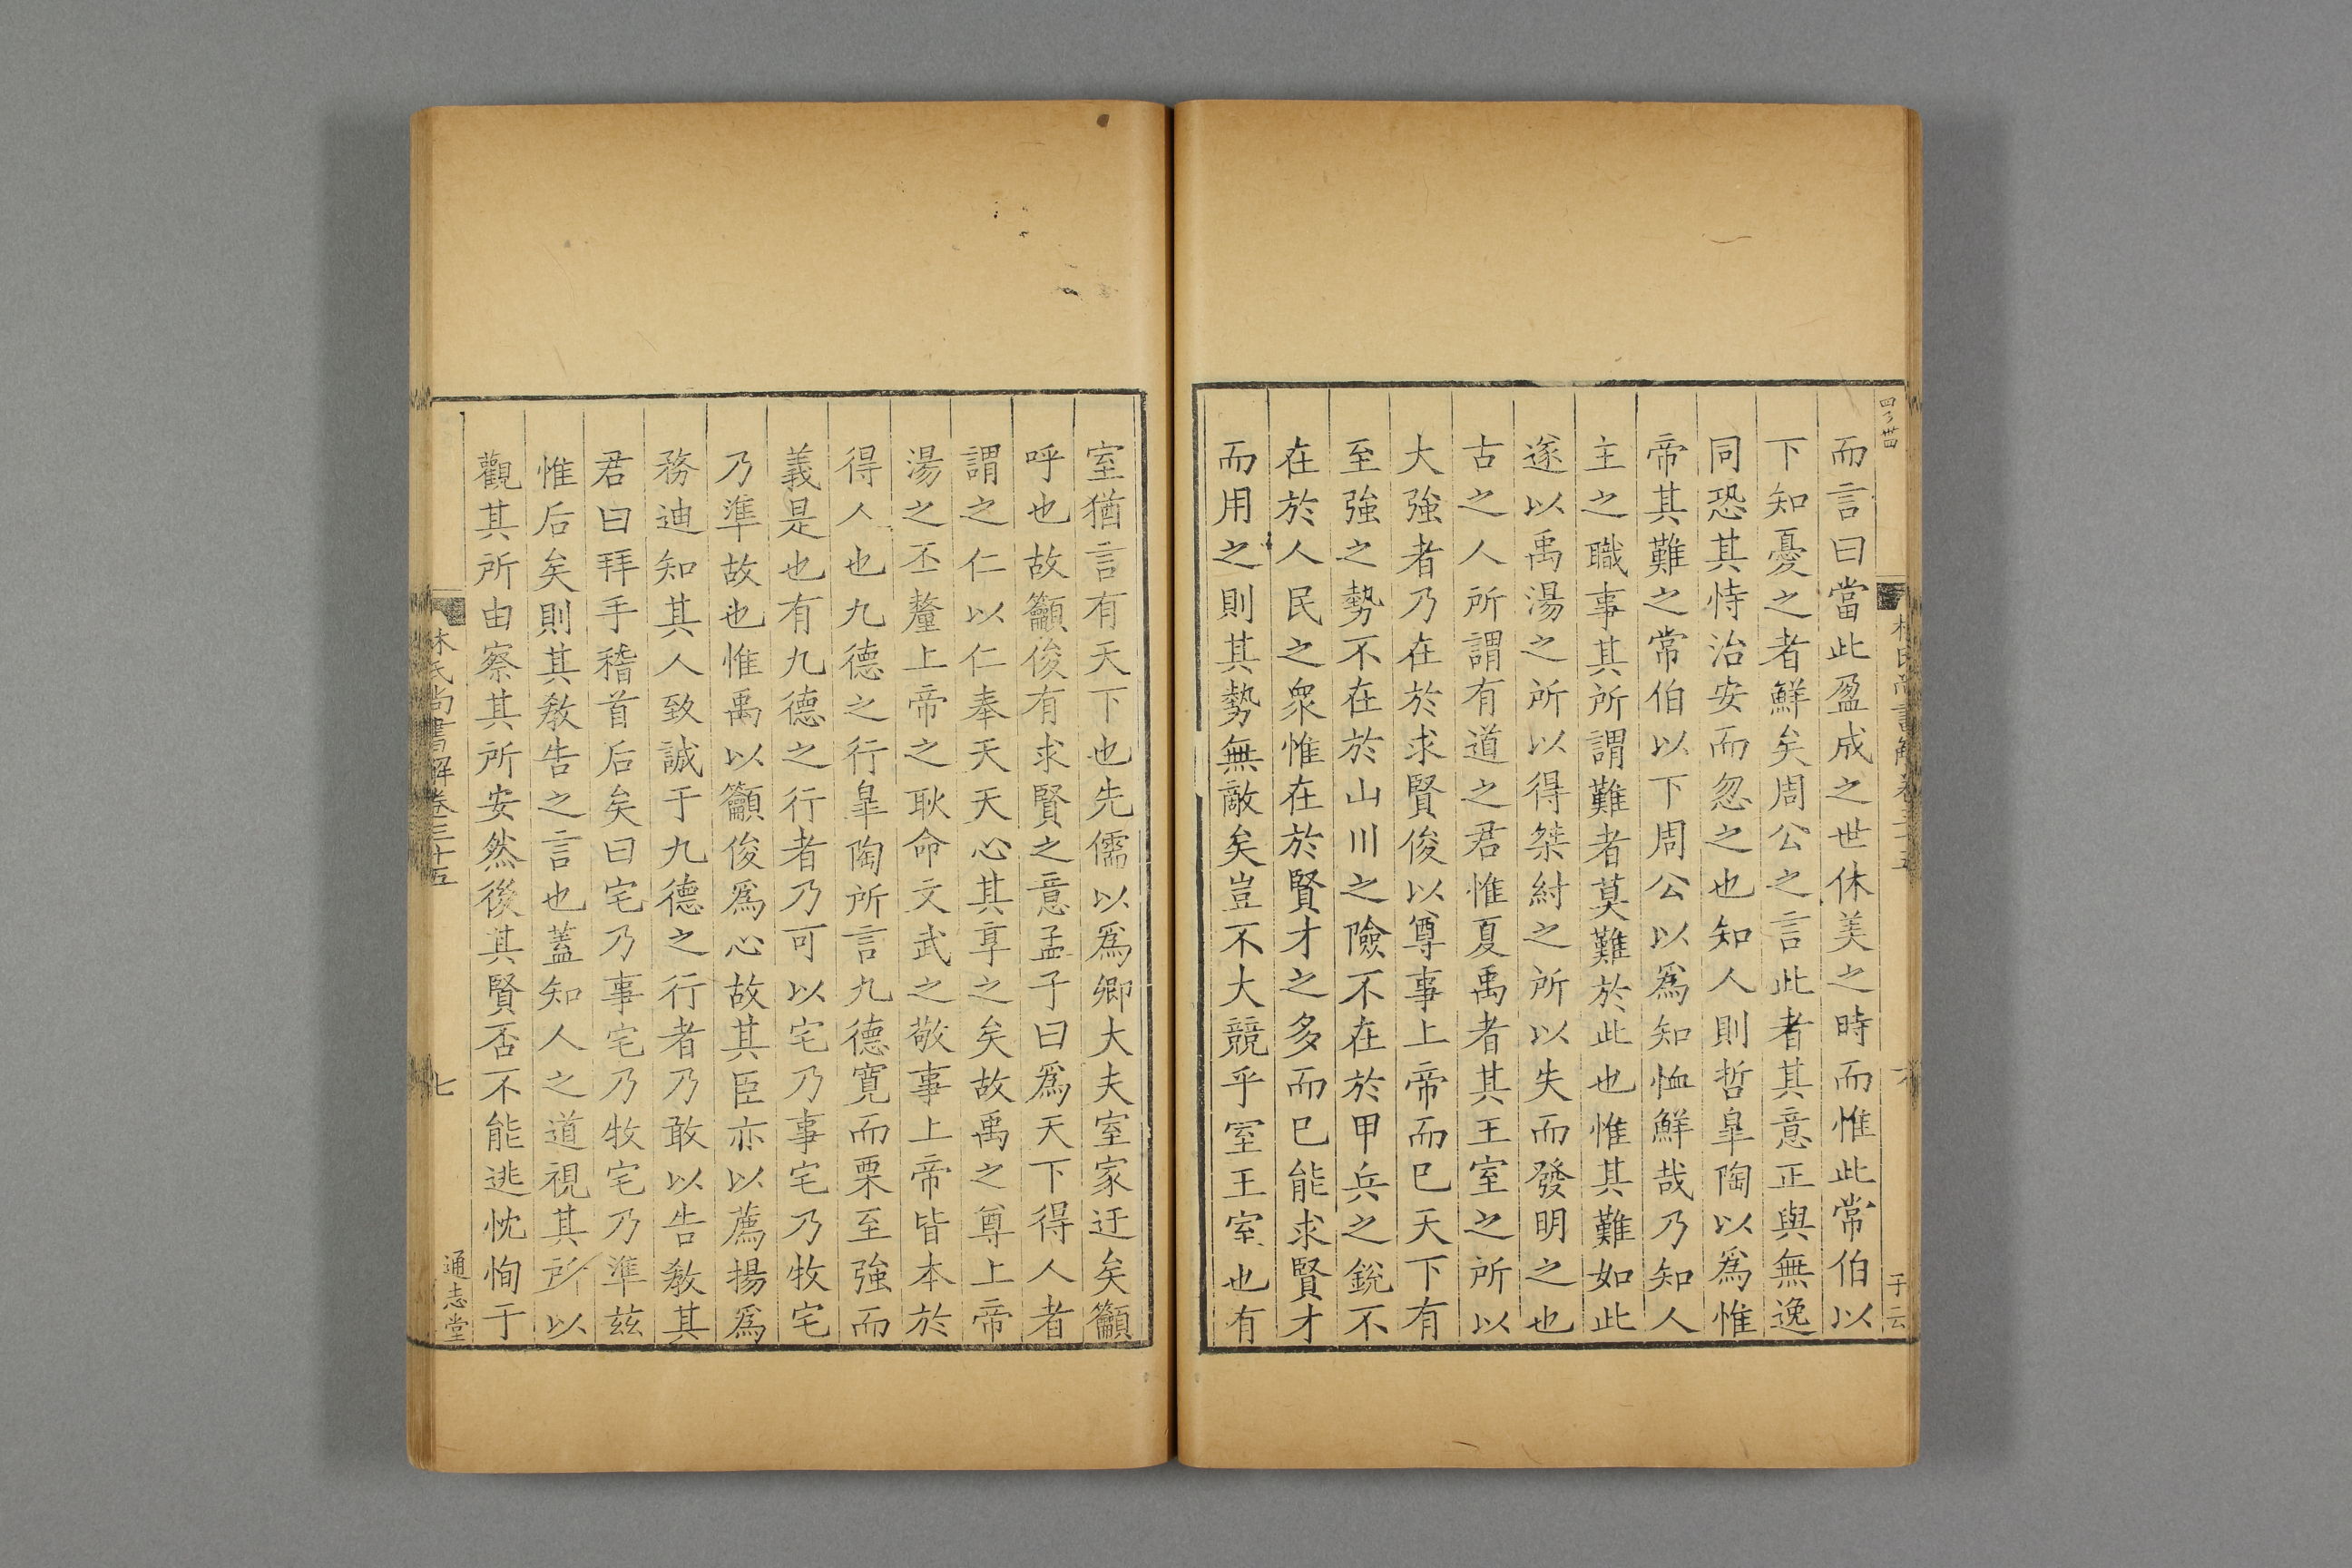 而言曰當此盈成之世休美之時而惟此常伯以
下知憂之者鮮矣周公之言此者其意正與無逸
同恐其恃治安而忽之也知人則哲臯陶以爲惟
帝其難之常伯以下周公以爲知恤鮮哉乃知人
主之職事其所謂難者莫難於此也惟其難如此
遂以禹湯之所以得桀紂之所以失而發明之也
古之人所謂有道之君惟夏禹者其王室之所以
大強者乃在於求賢俊以尊事上帝而已天下有
至強之勢不在於山川之險不在於甲兵之銳不
在於人民之衆惟在於賢才之多而已能求賢才
而用之則其勢無敵矣豈不大競乎室王室也有
室猶言有天下也先儒以爲卿大夫室家迂矣籲
呼也故籲俊有求賢之意孟子曰爲天下得人者
謂之仁以仁奉天天心其享之矣故禹之尊上帝
湯之丕釐上帝之耿命文武之敬事上帝皆本於
得人也九德之行臯陶所言九德寬而栗至強而
義是也有九德之行者乃可以宅乃事宅乃牧宅
乃準故也惟禹以籲俊爲心故其臣亦以薦揚爲
務迪知其人致誠于九德之行者乃敢以告敎其
君曰拜手稽首后矣曰宅乃事宅乃牧宅乃準茲
惟后矣則其敎告之言也蓋知人之道視其所以
觀其所由察其所安然後其賢否不能逃忱恂于
林氏尚書解卷三十五
七
通志堂